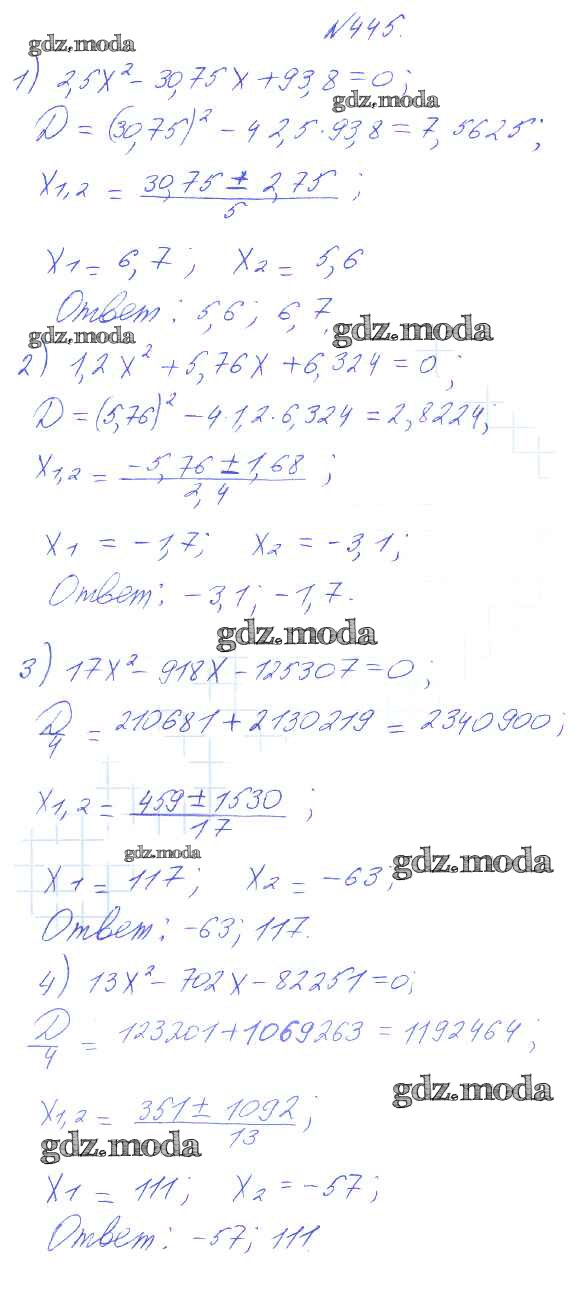 №445.
gdz.moda
1) 2,5x² - 30,75x + 93,8 = 0;
gdz.moda
D = (30,75)² - 4 2,5·93,8 = 7,5625;
x1,2 = 30,75 ± 2,75 / 5 ;
x1 = 6,7; x2 = 5,6
Ответ: 5,6; 6,7,
gdz.moda
gdz.moda
2) 1,2x² + 5,76x + 6,324 = 0;
D = (5,76)² - 4·1,2·6,324 = 2,8224;
x1,2 = -5,76 ± 1,68 / 2,4 ;
x1 = -1,7; x2 = -3,1;
Ответ: -3,1; -1,7.
gdz.moda
3) 17x² - 918x - 125307 = 0;
D/4 = 210681 + 2130219 = 2340900;
x1,2 = 459 ± 1530 / 17 ;
gdz.moda
gdz.moda
x1 = 117; x2 = -63;
Ответ: -63; 117.
4) 13x² - 702x - 82251 = 0;
D/4 = 123201 + 1069263 = 1192464;
gdz.moda
x1,2 = 351 ± 1092 / 13 ;
gdz.moda
x1 = 111; x2 = -57;
Ответ: -57; 111.